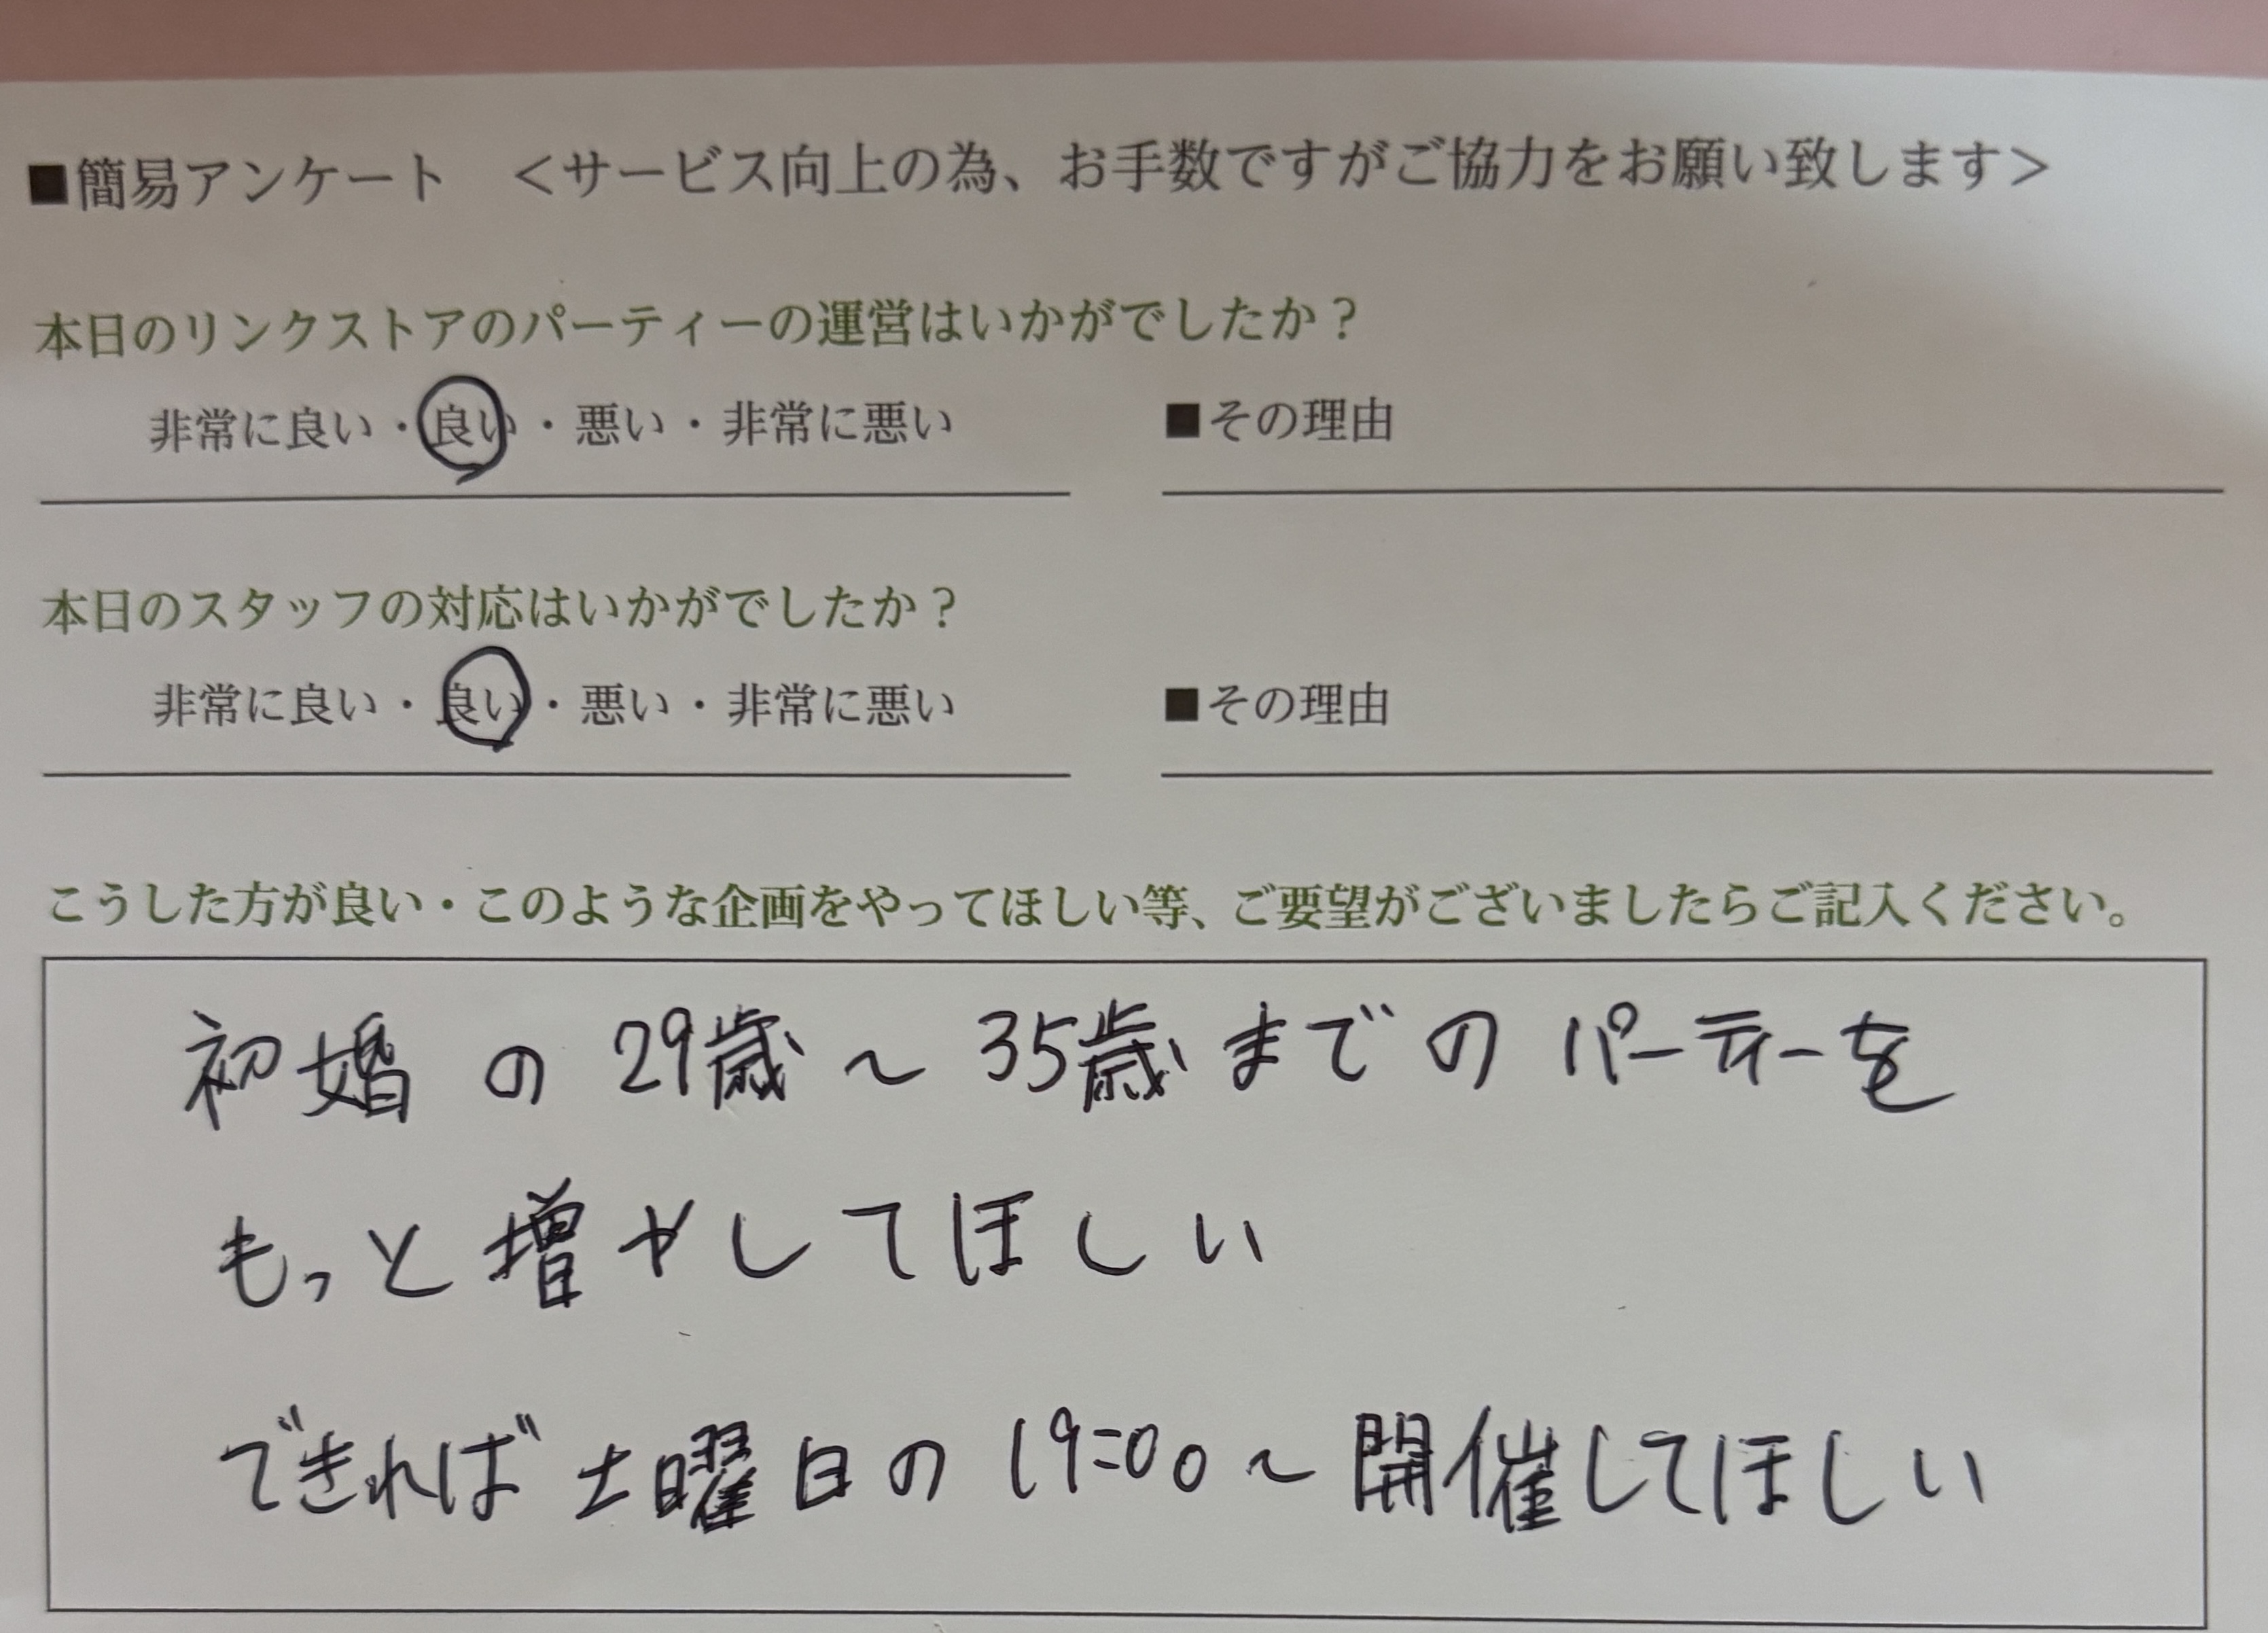 ■簡易アンケート　＜サービス向上の為、お手数ですがご協力をお願い致します＞
本日のリンクストアのパーティーの運営はいかがでしたか？
非常に良い・良い・悪い・非常に悪い　■その理由
本日のスタッフの対応はいかがでしたか？
非常に良い・良い・悪い・非常に悪い　■その理由
こうした方が良い・このような企画をやってほしい等、ご要望がございましたらご記入ください。
初婚の29歳～35歳までのパーティーを
もっと増やしてほしい
できれば土曜日の19:00～開催してほしい